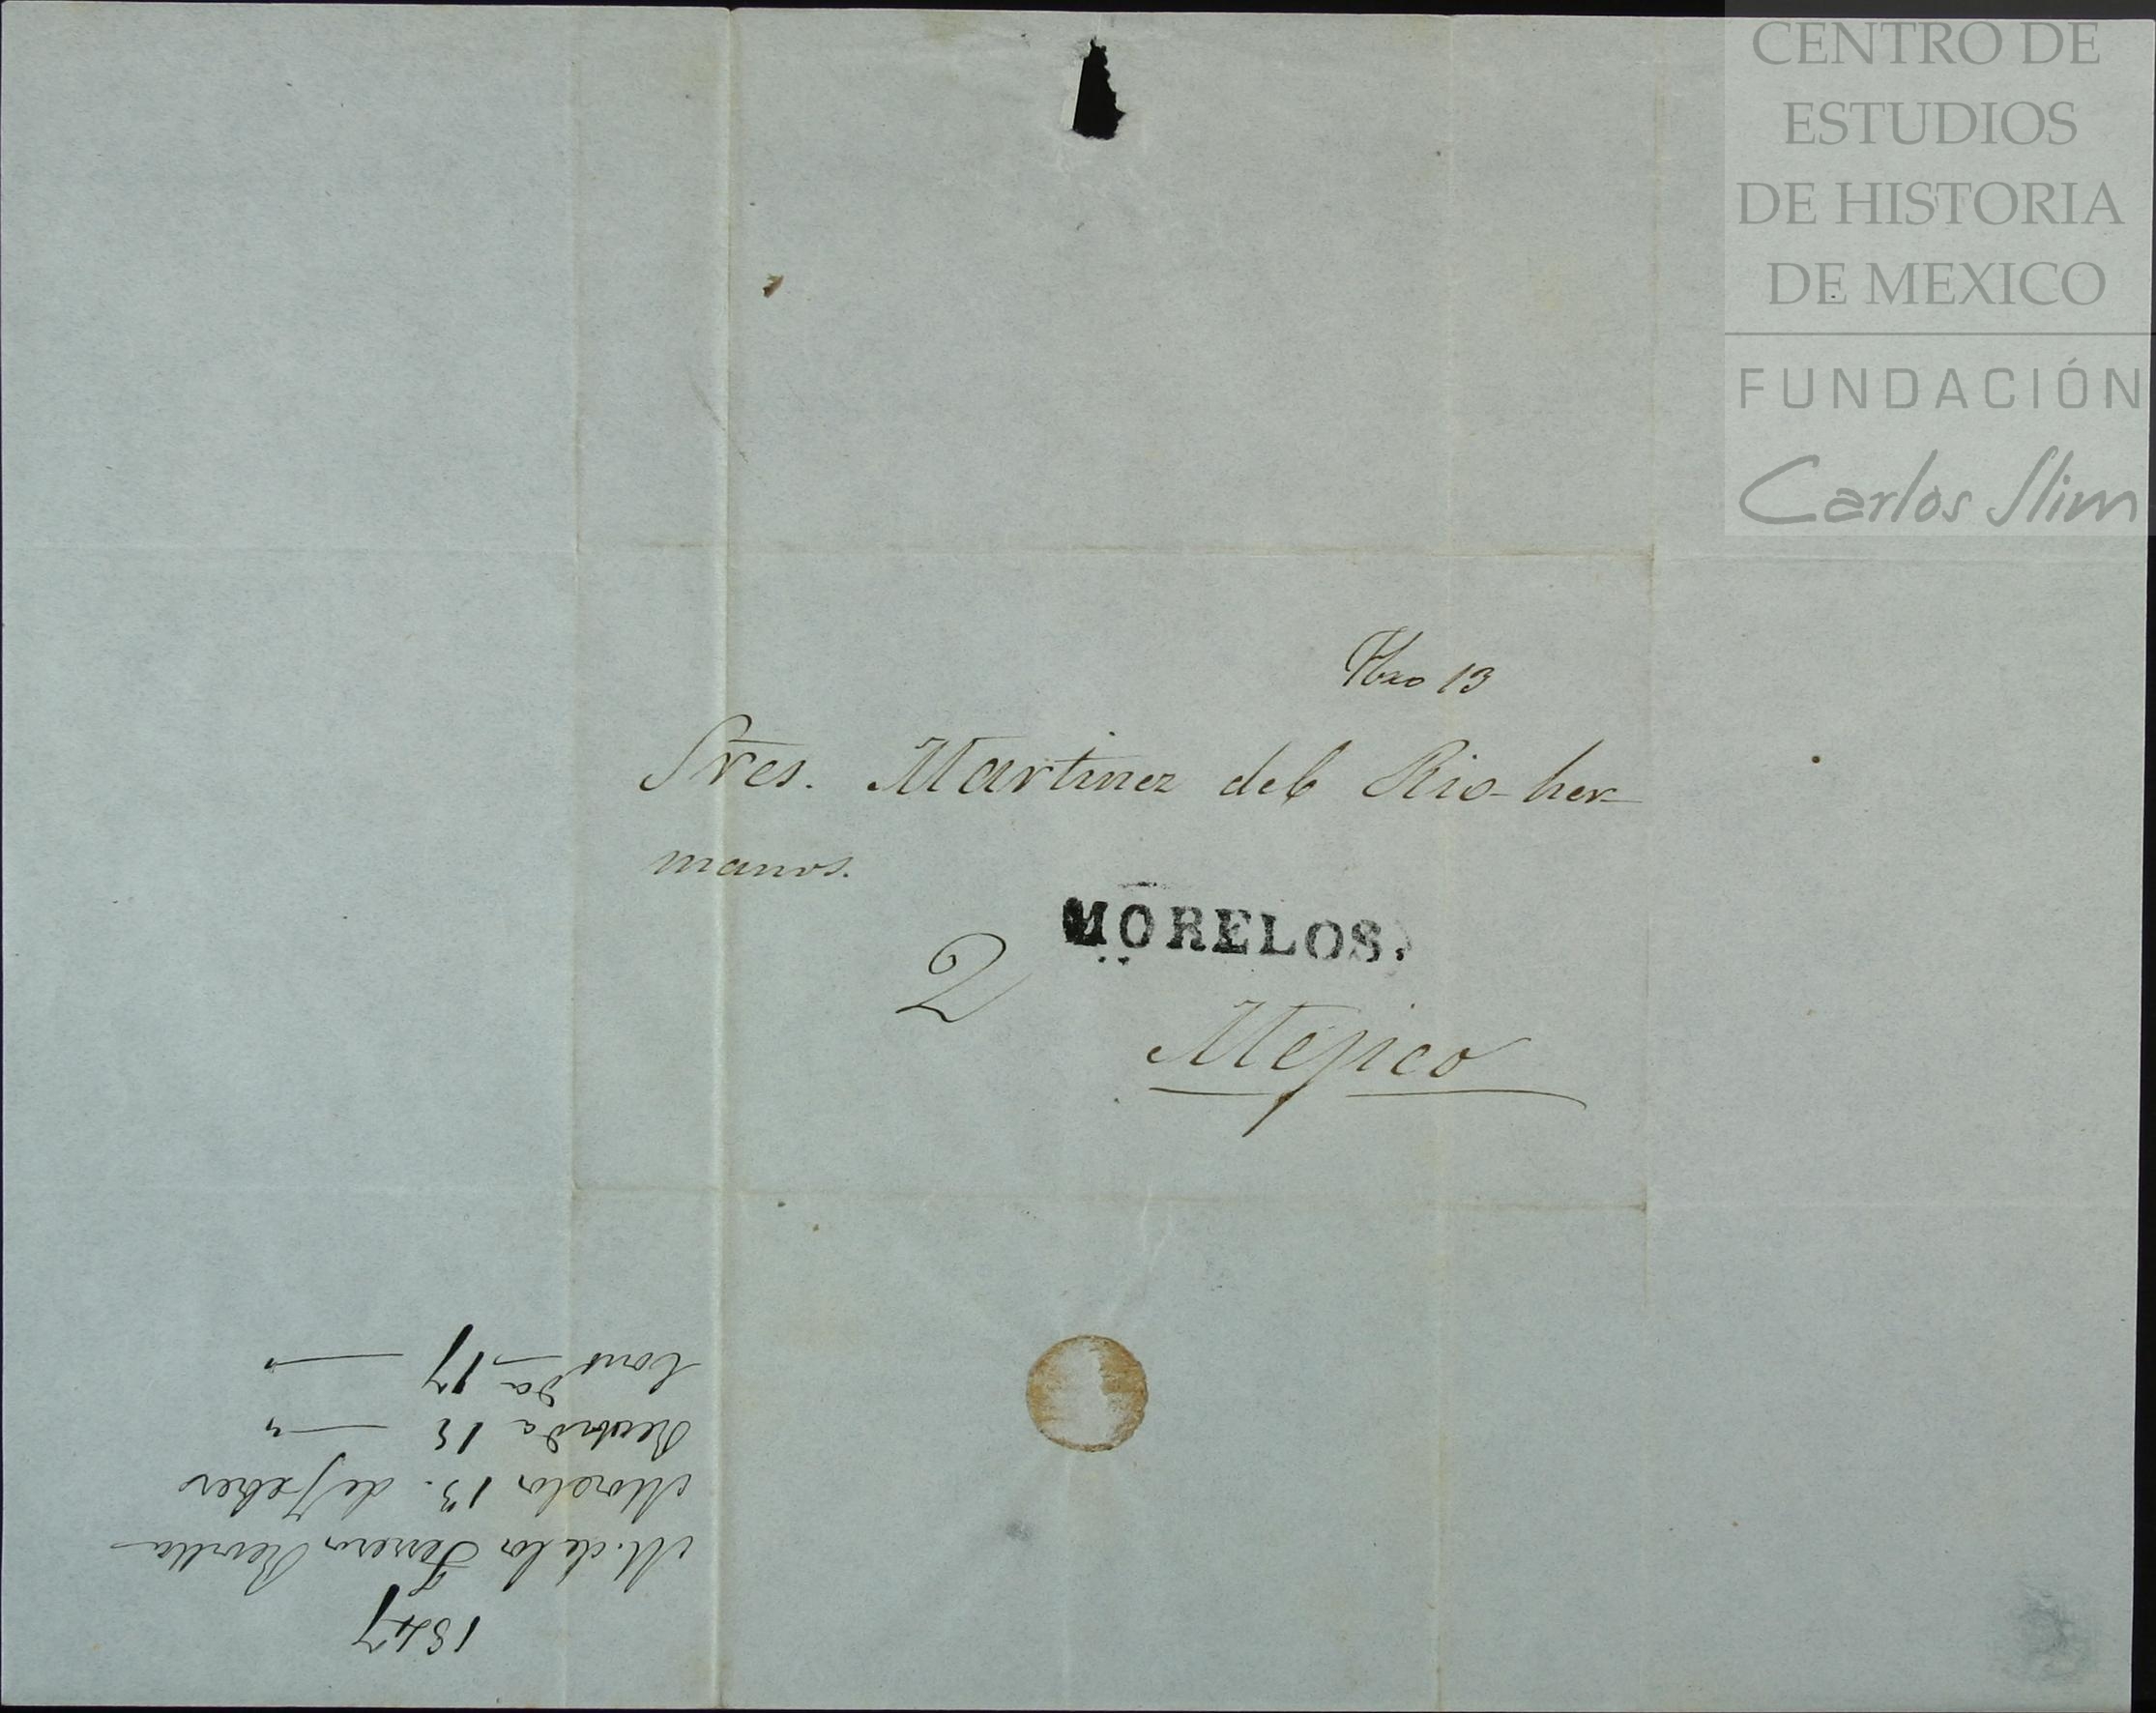 CENTRO DE
ESTUDIOS
DE HISTORIA
DE MEXICO
FUNDACIÓN
Carlos Slim
Fbro 13
Sres. Martinez del Rio her-
manos.
MORELOS.
2
Mejico
1847
M. de los Ferreros Revilla
Morelos 13. de Febrero
Recibida 15 — "
Contda 17 — "